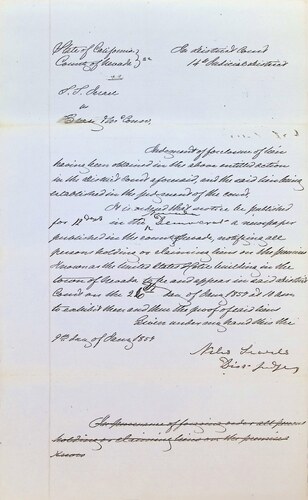 State of California } ss
County of Nevada
In District Court
14th Judicial District
vs
Judgment of foreclosure of lien
having been obtained in the above entitled action
in the district court aforesaid, and the said lien being
established in the judgment of the court,
It is ordered that notice be published
for days in the Nevada Democrat a newspaper
published in the county Nevada, notifying all
persons holding or claiming liens on the premises
Known as the United States building in the
town of Nevada to be and appear in said district
Court on the 26th day of Jany 1859 at 10 am
to exhibit there and then the proof of said liens
Given under my hand this the
9th day of Jany 1859
Niles Searls
Dist. Judge
In pursuance of foregoing order all persons
holding or claiming liens on the premises
known